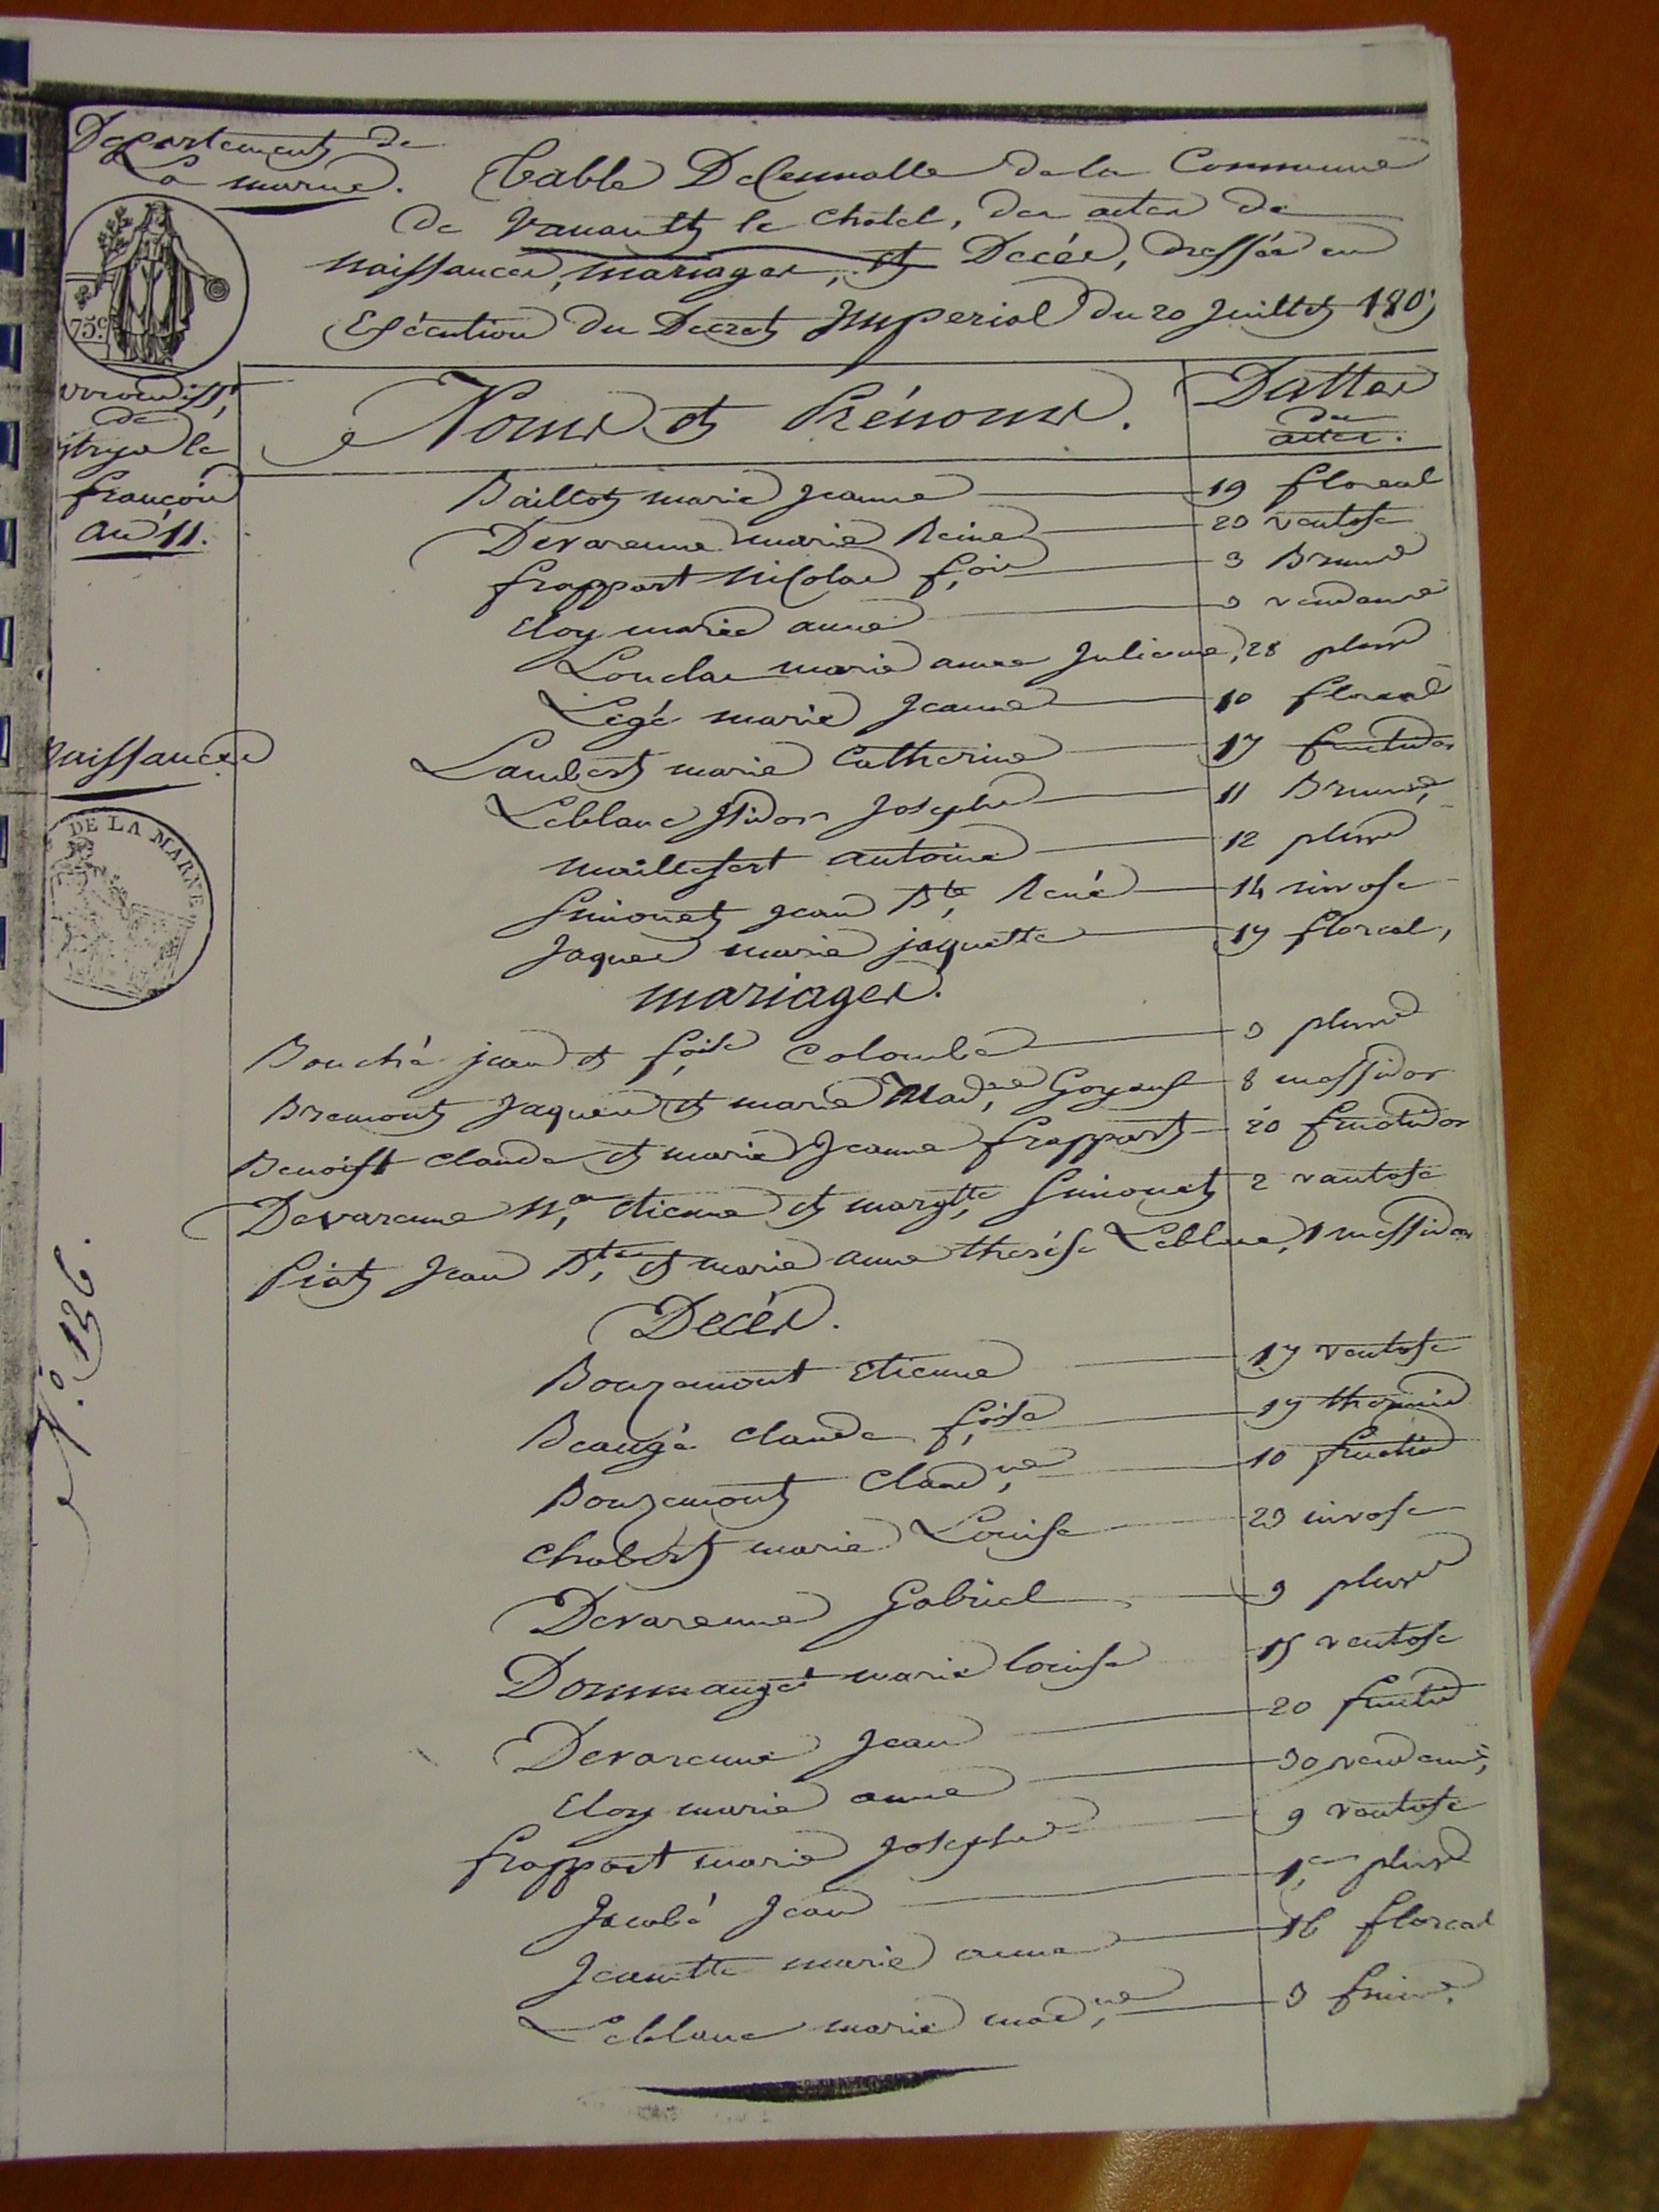 Departement de
La marne.
Table Decennalle de la Commune
de Vanault le Chatel, des actes de
naissances, mariages, et Decès, dressée en
Exécution du Decret Imperial du 20 Juillet 1807
75c
arrondisst,
de
vitry le
françois
an 11.
Noms et Prénoms.
Dattes
des
actes.
Baillot marie Jeanne 19 floreal
Devarenne marie Reine 20 ventose
frappart Nicolas f,ois 3 Brume
Eloy marie anne 3 vendeme
Louclas marie anne Julienne, 28 pluvse
Legé marie Jeanne 10 floreal
Naissances
Lambert marie Catherine 17 fructidor
Leblanc Isidor Joseph 11 Brume,
DE LA MARNE
maillefert antoine 12 pluvse
Simonet Jean Bte, René 14 nivose
Jaques marie jaquette 19 floreal,
mariages.
Bouché jean et f,oise Colombe 3 pluvse
Bremont Jaques et marie Mad,ne Goyeux 8 messidor
Benoist Claude et marie Jeanne frappart 20 fructidor
Devarenne N,as etienne et margtte, Simonet 2 ventose
Piat Jean Bte, et marie anne therése Leblanc, 1 messidor
N.o 136.
Decès.
Bouzemont Etienne 17 ventose
Beaugé Claude f,oise 19 thermid
Bouzemont Claud,ne 10 fructid
Chabert marie Louise 23 nivose
Devarenne Gabriel 9 pluvse
Dommangé marie louise 15 ventose
Devarenne Jean 20 fructid
Eloy marie anne 30 vendeme,
frappart marie Josephe 9 ventose
Jacobé Jean 1,er pluvse
Jeannette marie anne 16 floreal
Leblanc marie mad,ne 3 frim.